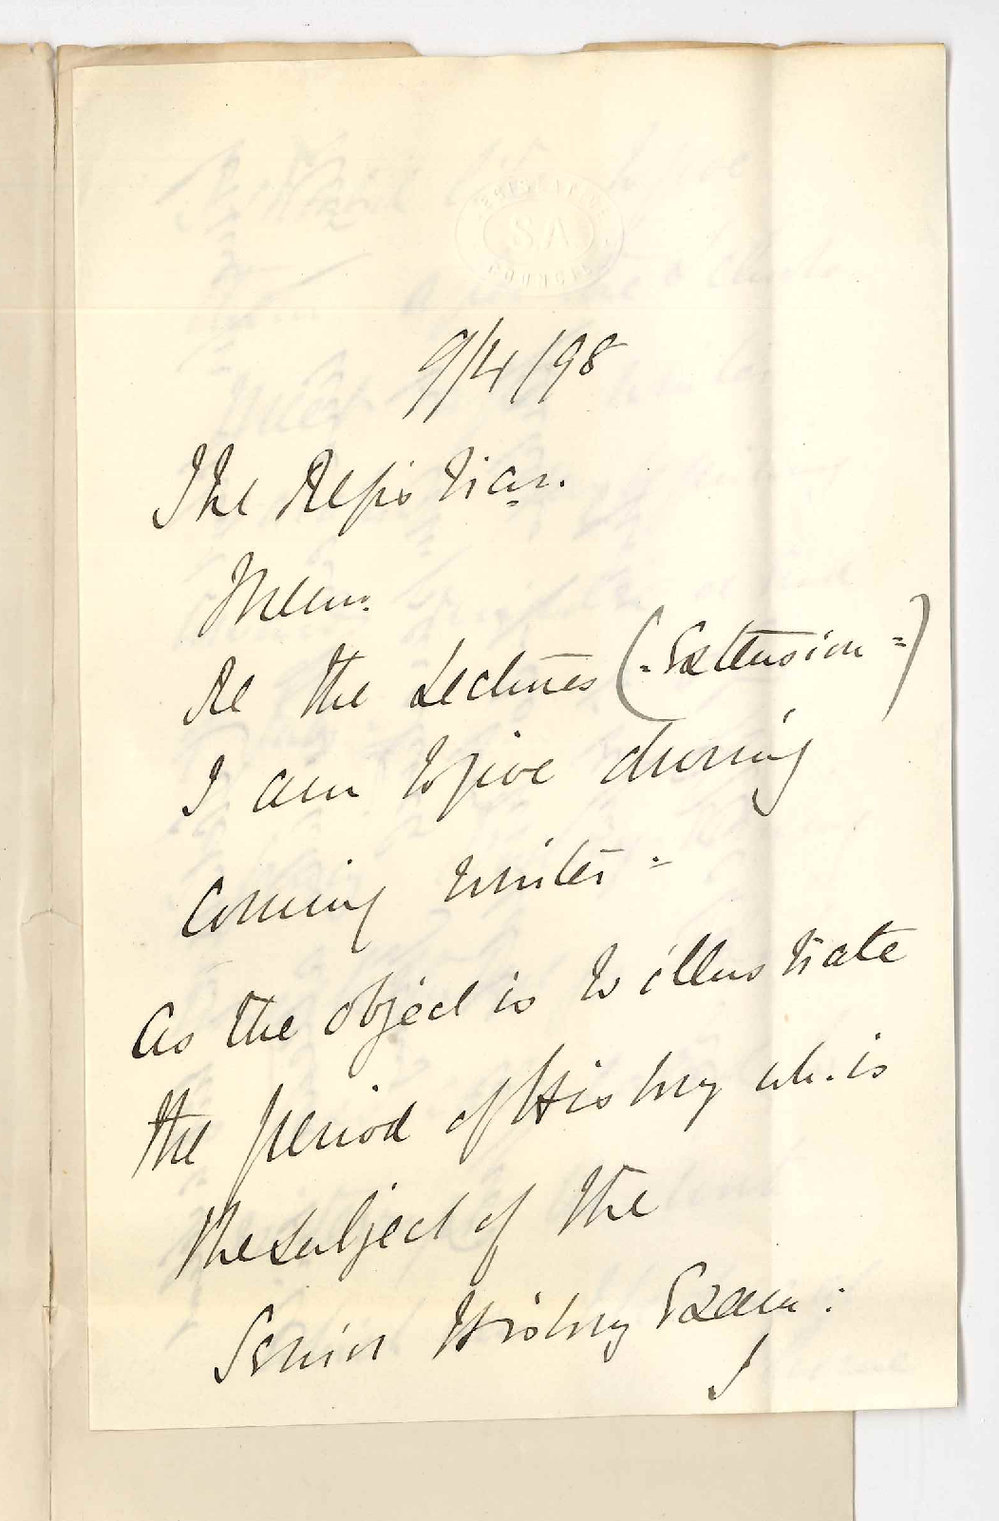 LEGISLATIVE
S.A.
COUNCIL
9/4/98
The Registrar.
Mem.
Re the Lectures (-Extension=)
I am to give during
coming winter =
As the object is to illustrate
the period of History wh. is
the subject of the
Senior History Exam:
I